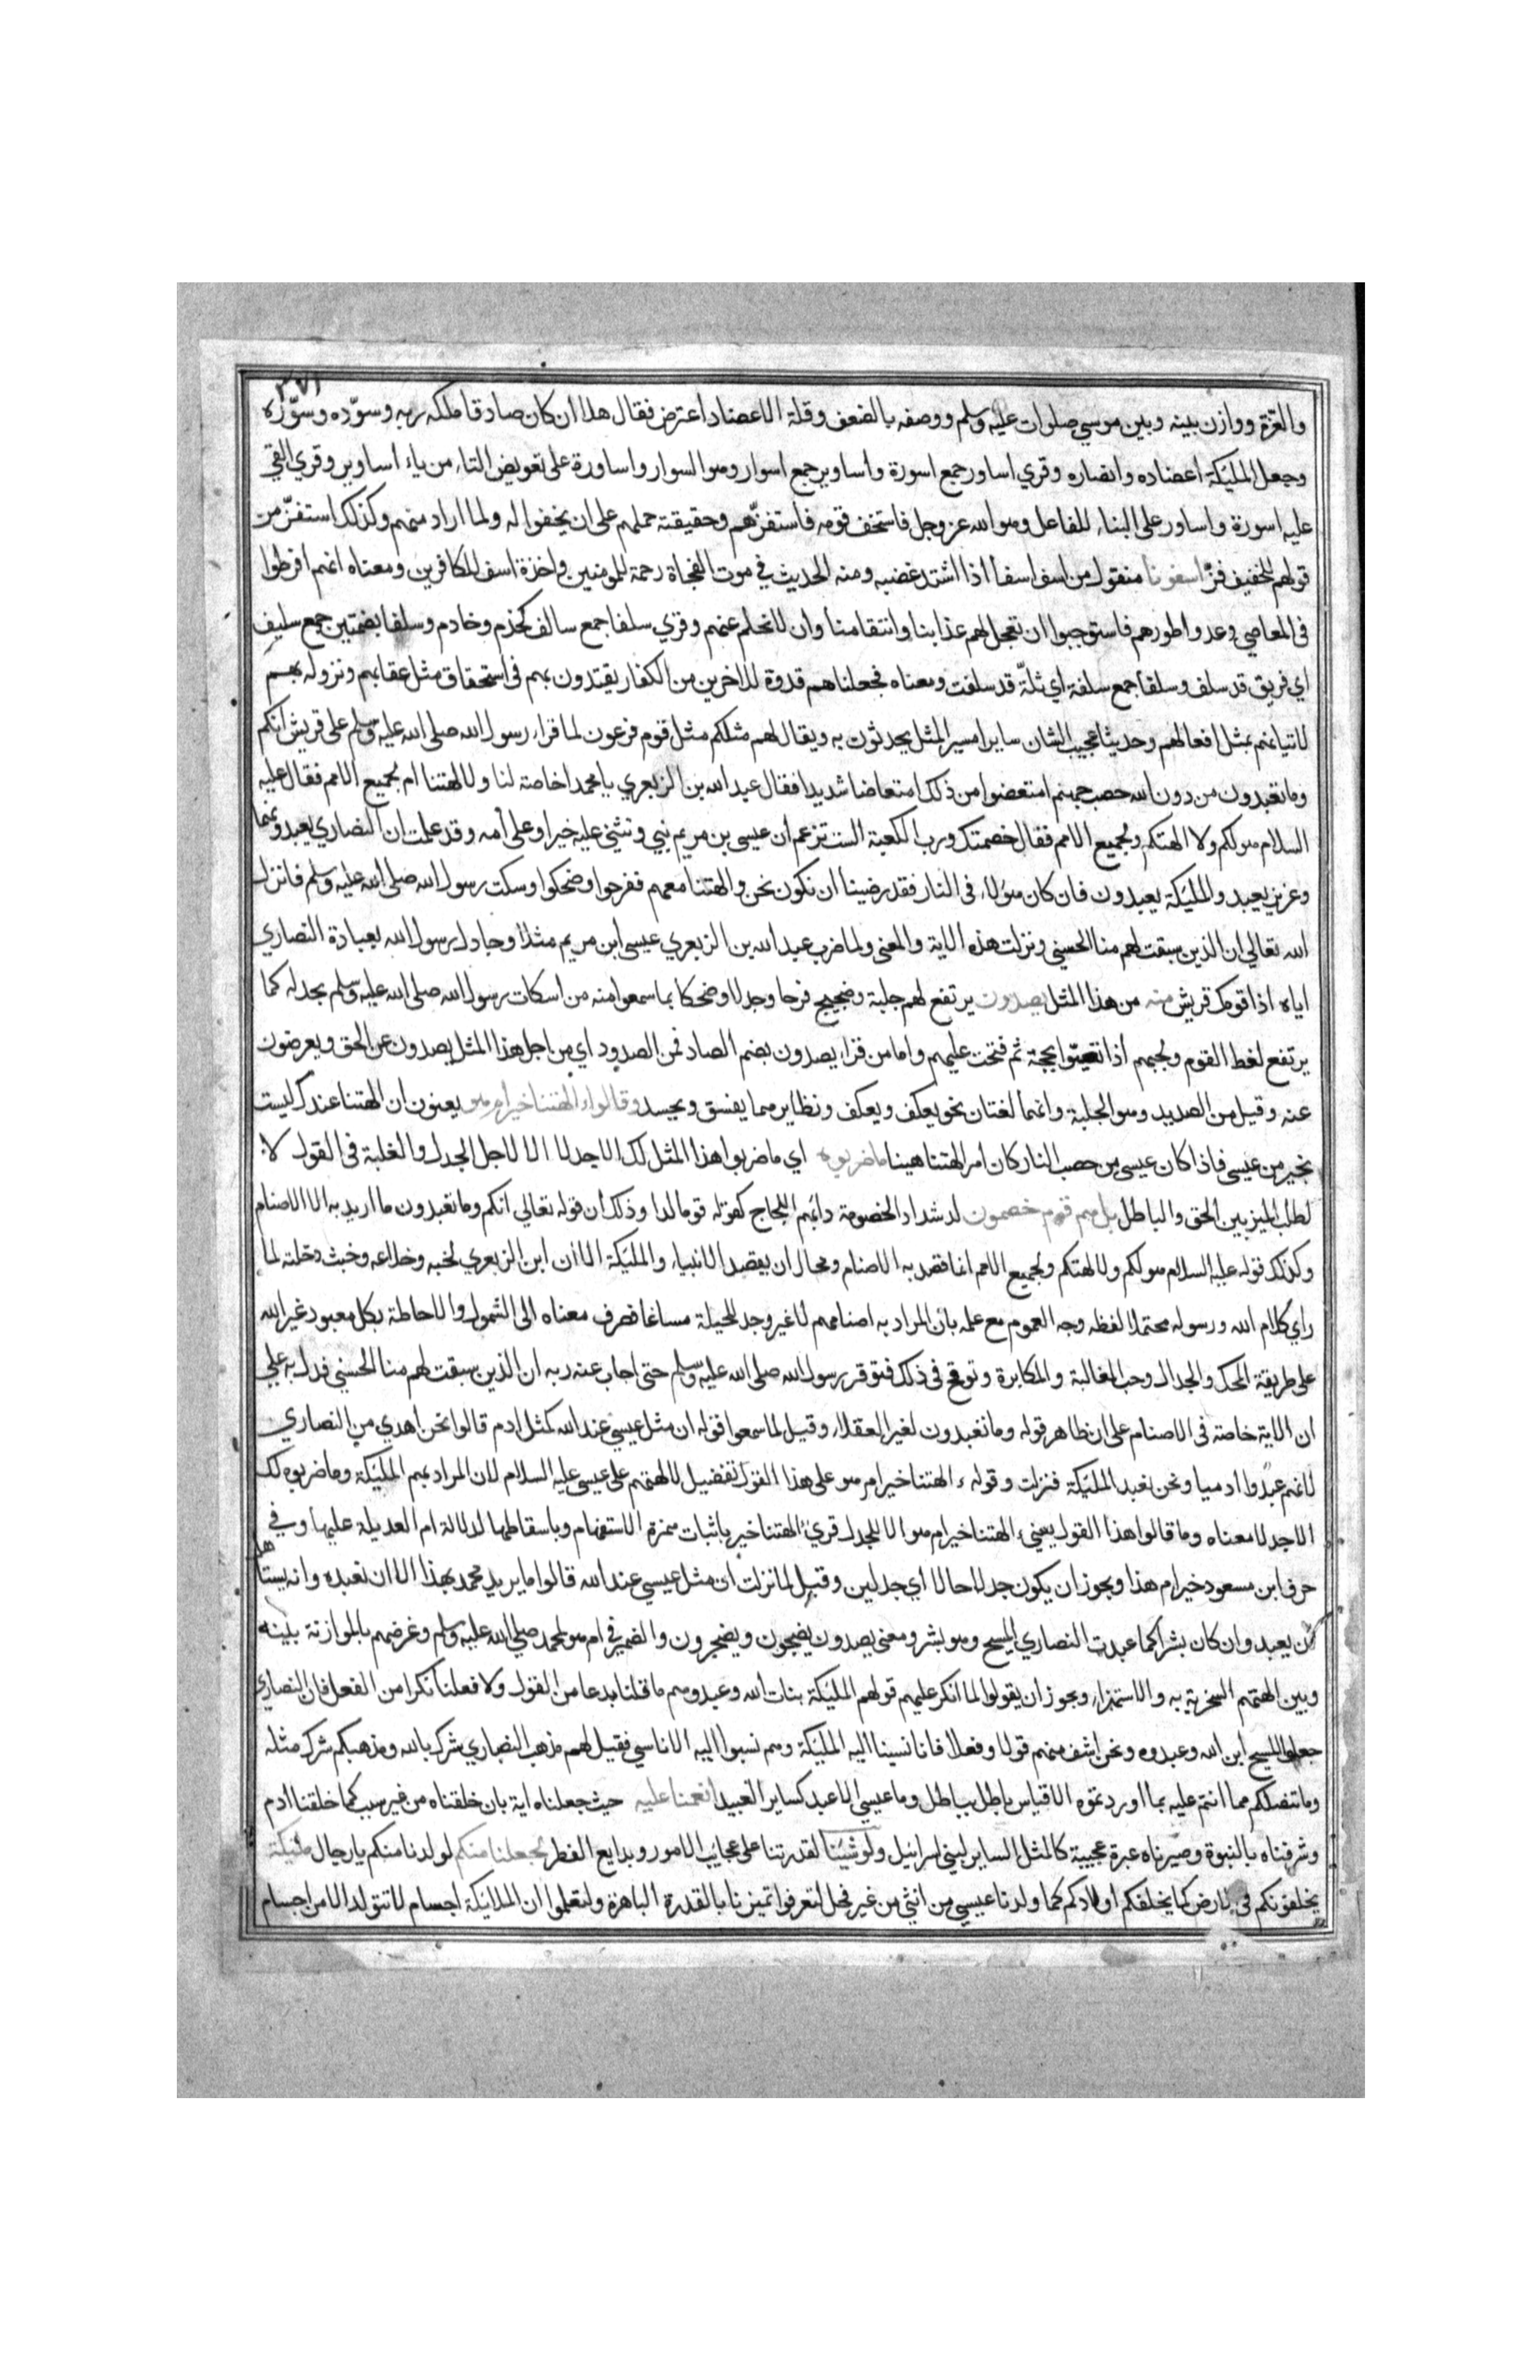 ٣٧١
والعزة ووازن بينه وبين موسى صلوات عليه وسلم ووصفه بالضعف وقلة الاعضاد اعترض فقال هلا ان كان صادقا ملكه ربه وسوّده وسوّره
وجعل المليكة أعضاده وانصاره وقري اساور جمع اسورة وأساوير جمع اسوار وهو السوار واساورة على تعويض التاء من ياء أساوير وقري القي
عليه اسورة واساور على البناء للفاعل وهو الله عز وجل فاستخف قومه فاستفزّهم وحقيقته حملهم على ان يخفوا له ولما اراد منهم وكذلك استفزّ من
قولهم للخفيف فزّ اسفونا منقول من اسف اسفا اذا اشتد غضبه ومنه الحديث في موت الفجاة رحمة للمومنين واخذة اسف للكافرين ومعناه انهم افرطوا
فى المعاصي وعدوا طورهم فاستوجبوا ان نعجل لهم عذابنا وانتقامنا وان لا نحلم عنهم وقري سلفا جمع سالف كخدم وخادم وسلفا بضمتين جمع سليف
اي فريق قد سلف وسلفا جمع سلفة اي ثلّة قد سلفت ومعناه فجعلناهم قدوة للاخرين من الكفار يقتدون بهم فى استحقاق مثل عقابهم ونزوله بهم
لاتيانهم بمثل افعالهم وحديثا عجيب الشان سايرا مسير المثل يحدثون به ويقال لهم مثلكم مثل قوم فرعون لما قراء رسول الله صلى الله عليه وسلم على قريش انكم
وما تعبدون من دون الله حصب جهنم امتعضوا من ذلك امتعاضا شديدا فقال عبد الله بن الزبعري يا محمد اخاصة لنا ولالهتنا ام لجميع الامم فقال عليه
السلام هو لكم ولا الهتكم ولجميع الامم فقال خصمتك ورب الكعبة الست تزعم ان عيسى بن مريم نبي وتثني عليه خيرا وعلى أمه وقد علمت ان النصاري يعبدونهما
وعزير يعبد والمليكة يعبدون فان كان هؤلاء فى النار فقد رضينا ان نكون نحن والهتنا معهم ففرحوا وضحكوا وسكت رسول الله صلى الله عليه وسلم فانزل
الله تعالي ان الذين سبقت لهم منا الحسني ونزلت هذه الاية والمعنى ولما ضرب عبد الله بن الزبعري عيسى ابن مريم مثلا وجادل رسول الله بعبادة النصاري
اياه اذا قومك قريش منه من هذا المثل يصدون يرتفع لهم جلبة وضجيج فرحا وجدلا وضحكا بما سمعوا منه من اسكات رسول الله صلى الله عليه وسلم بجدله كما
يرتفع لغط القوم ولجبهم اذا تعيّوا بحجة ثم فتحت عليهم واما من قراء يصدون بضم الصاد فمن الصدود اي من اجل هذا المثل يصدون عن الحق ويعرضون
عنه وقيل من الصديد وهو الجلبة وانهما لغتان نحو يعكف ويعكف ونظاير مما يفسق ويحسد وقالوا ءالهتنا خير ام هو يعنون ان الهتنا عندك ليست
بخير من عيسى فاذا كان عيسى من حصب النار كان امر الهتنا هينا ما ضربوه اي ما ضربوا هذا المثل لك الا جدلا الا لاجل الجدل والغلبة فى القول لا
لطلب الميز بين الحق والباطل بل هم قوم خصمون لد شداد الخصومة دائبهم اللجاج كقوله قوما لدا وذلك أن قوله تعالي انكم وما تعبدون ما اريد به الا الاصنام
وكذلك قوله عليه السلام هو لكم ولالهتكم ولجميع الامم انما قصد به الاصنام ومحال ان يقصد الانبياء والمليكة الا ان ابن الزبعري لخبه وخداعه وخبث دخلته لما
راي كلام الله ورسوله محتملا لفظه وجه العموم مع علمه بان المراد به اصنامهم لا غير وجد للحيلة مساغا فصرف معناه الى الشمول والاحاطة بكل معبود غير الله
على طريقة المحك والجدال وحب المغالبة والمكابرة وتوقح فى ذلك فتوقر رسول الله صلى الله عليه وسلم حتى اجاب عنه ربه ان الذين سبقت لهم منا الحسني فدل به علي
ان الاية خاصة فى الاصنام على ان ظاهر قوله وما تعبدون لغير العقلاء وقيل لما سمعوا قوله ان مثل عيسي عند الله كمثل ادم قالوا نحن اهدي من النصاري
لانهم عبدوا أدميا ونحن نعبد المليكة فنزلت وقوله ء الهتنا خير ام هو على هذا القول تفضيل لالهتهم على عيسى عليه السلام لان المراد بهم المليكة وما ضربوه لك
الا جدلا معناه وما قالوا هذا القول يعني ء الهتنا خير ام هو الا للجدل قري ءالهتنا خير باثبات همزة الاستفهام وباسقاطها لدلالة ام العديلة عليها وفي
حرف ابن مسعود خير ام هذا ويجوز ان يكون جدلا حالا اي جدلين وقيل لما نزلت ان مثل عيسي عند الله قالوا ما يريد محمد بهذا الا ان نعبده وانه يستاهل
ان يعبد وان كان بشرا كما عبدت النصاري المسيح وهو بشر ومعنى يصدون يضجون ويضجرون والضمير في ام هو لمحمد صلي الله عليه وسلم وغرضهم بالموازنة بينه
وبين الهتهم السخرية به والاستهزاء ويجوز ان يقولوا لما انكر عليهم قولهم المليكة بنات الله وعبدوهم ما قلنا بدعا من القول ولا فعلنا نكرا من الفعل فان النصاري
جعلوا المسيح ابن الله وعبدوه ونحن اشف منهم قولا وفعلا فانا نسبنا اليه المليكة وهم نسبوا اليه الاناسي فقيل لهم مذهب النصاري شرك بالله ومذهبكم شرك مثله
وما تنصلكم مما انتم عليه بما اوردتموه الا قياس باطل بباطل وما عيسي الا عبد كساير العبيد انعمنا عليه حيث جعلناه اية بان خلقناه من غير سبب كما خلقنا أدم
وشرفناه بالنبوة وصيرناه عبرة عجيبة كالمثل الساير لبني اسرائيل ولو شيئنا لقدرتنا على عجايب الامور وبدايع الفطر لجعلنا منكم لولدنا منكم يا رجال مليكة
يخلفونكم فى الارض كما يخلفكم أولادكم كما ولدنا عيسي من انثي من غير فحل لتعرفوا تميزنا بالقدرة الباهرة ولتعلموا ان الملائيكة اجسام لا تتولد الا من اجسام